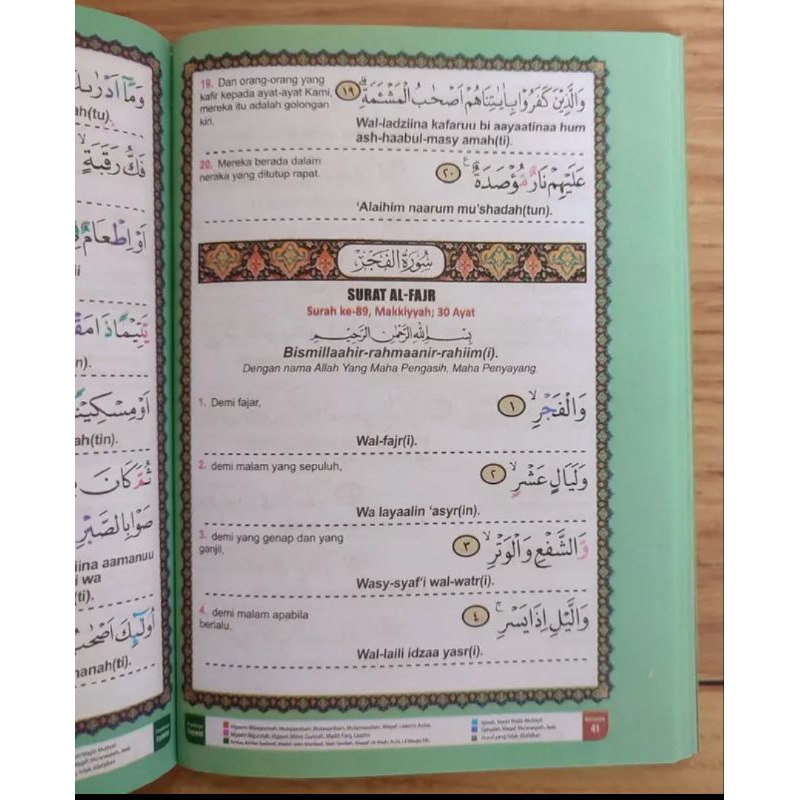 وَمَآ اَدْرٰىكَ
ah(tu).
فَكُّ رَقَبَةٍ
اَوْ اِطْعَامٌ فِيْ
يَّتِيْمًا ذَا مَقْ
n).
اَوْ مِسْكِيْنًا
ah(tin).
ثُمَّ كَانَ
صَوْا بِالصَّبْرِ
iina aamanuu
i wa
(ti).
اُولٰۤىِٕكَ اَصْحٰبُ
anah(ti).
19. Dan orang-orang yang
kafir kepada ayat-ayat Kami,
mereka itu adalah golongan
kiri.
وَالَّذِيْنَ كَفَرُوْا بِاٰيٰتِنَا هُمْ اَصْحٰبُ الْمَشْـَٔمَةِۗ ١٩
Wal-ladziina kafaruu bi aayaatinaa hum
ash-haabul-masy amah(ti).
20. Mereka berada dalam
neraka yang ditutup rapat.
عَلَيْهِمْ نَارٌ مُّؤْصَدَةٌ ࣖ ٢٠
'Alaihim naarum mu'shadah(tun).
سُوْرَةُ الْفَجْرِ
SURAT AL-FAJR
Surah ke-89, Makkiyyah; 30 Ayat
بِسْمِ اللّٰهِ الرَّحْمٰنِ الرَّحِيْمِ
Bismillaahir-rahmaanir-rahiim(i).
Dengan nama Allah Yang Maha Pengasih, Maha Penyayang.
1. Demi fajar,
وَالْفَجْرِۙ ١
Wal-fajr(i).
2. demi malam yang sepuluh,
وَلَيَالٍ عَشْرٍۙ ٢
Wa layaalin 'asyr(in).
3. demi yang genap dan yang
ganjil,
وَّالشَّفْعِ وَالْوَتْرِۙ ٣
Wasy-syaf'i wal-watr(i).
4. demi malam apabila
berlalu.
وَالَّيْلِ اِذَا يَسْرِۚ ٤
Wal-laili idzaa yasr(i).
41